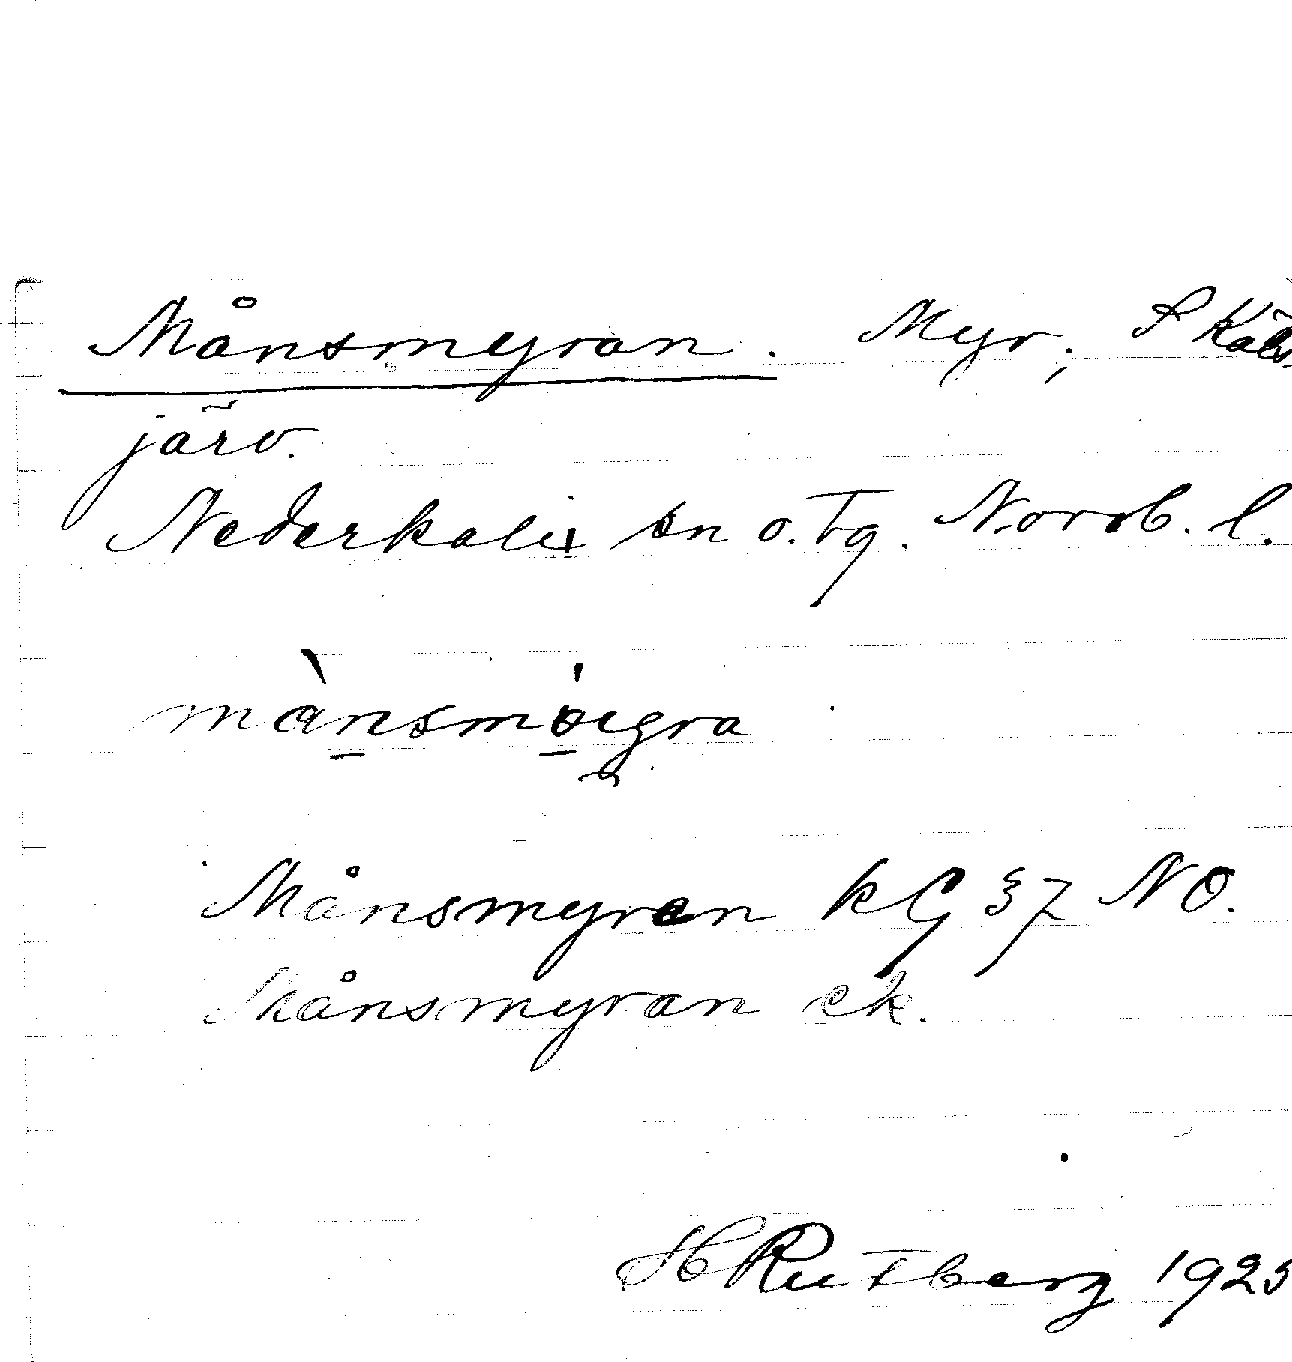 Månsmyran. Myr, S Kälv-
järv.
Nederkalix sn o. Tg. Norrb. l.
månsmöigra
Månsmyran kG 37 NO.
Månsmyran ek.
H Rutberg 1923